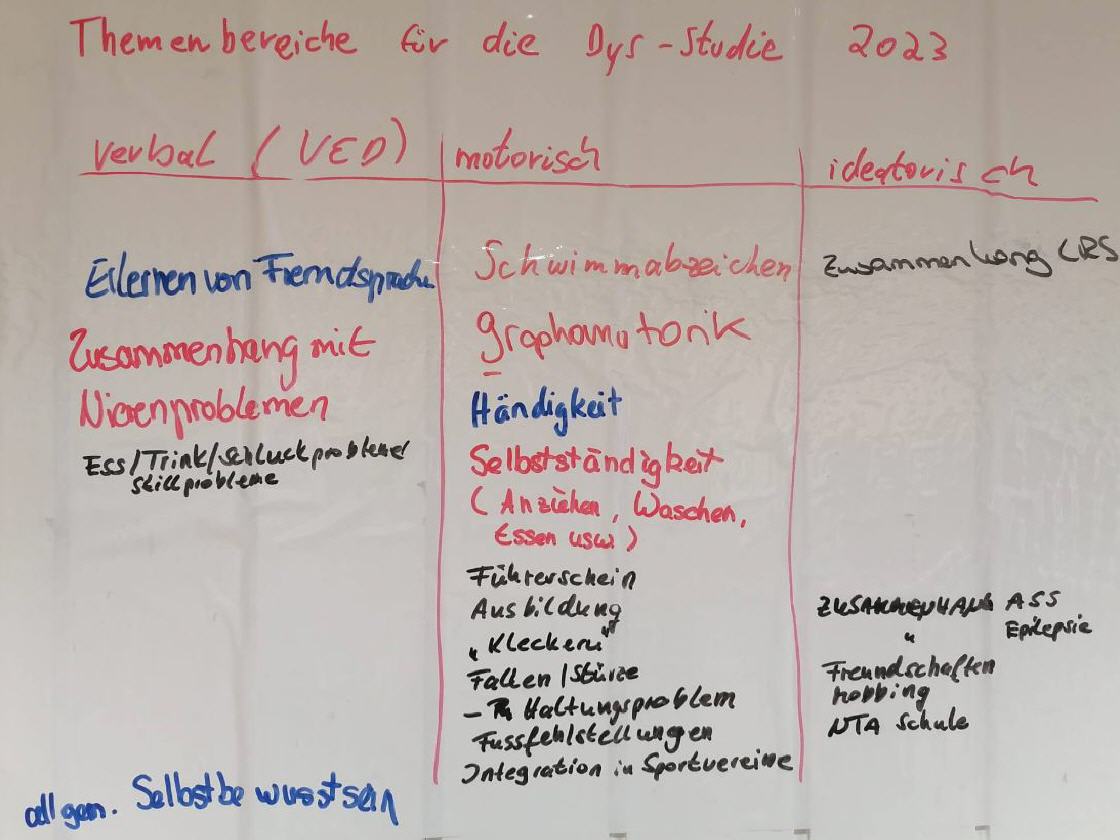 Themenbereiche für die Dys-Studie 2023
verbal (VED)
Erlernen von Fremdsprache
Zusammenhang mit
Nierenproblemen
Ess/Trink/Schluckprobleme/
Stillprobleme
allgem. Selbstbewusstsein
motorisch
Schwimmabzeichen
graphomotorik
Händigkeit
Selbstständigkeit
(Anziehen, Waschen,
Essen usw.)
Führerschein
Ausbildung
"Kleckern"
Fallen/Stürze
- Haltungsproblem
Fussfehlstellungen
Integration in Sportvereine
ideatorisch
Zusammenhang LRS
ZUSAMMENHANG ASS
" Epilepsie
Freundschaften
Mobbing
NTA Schule